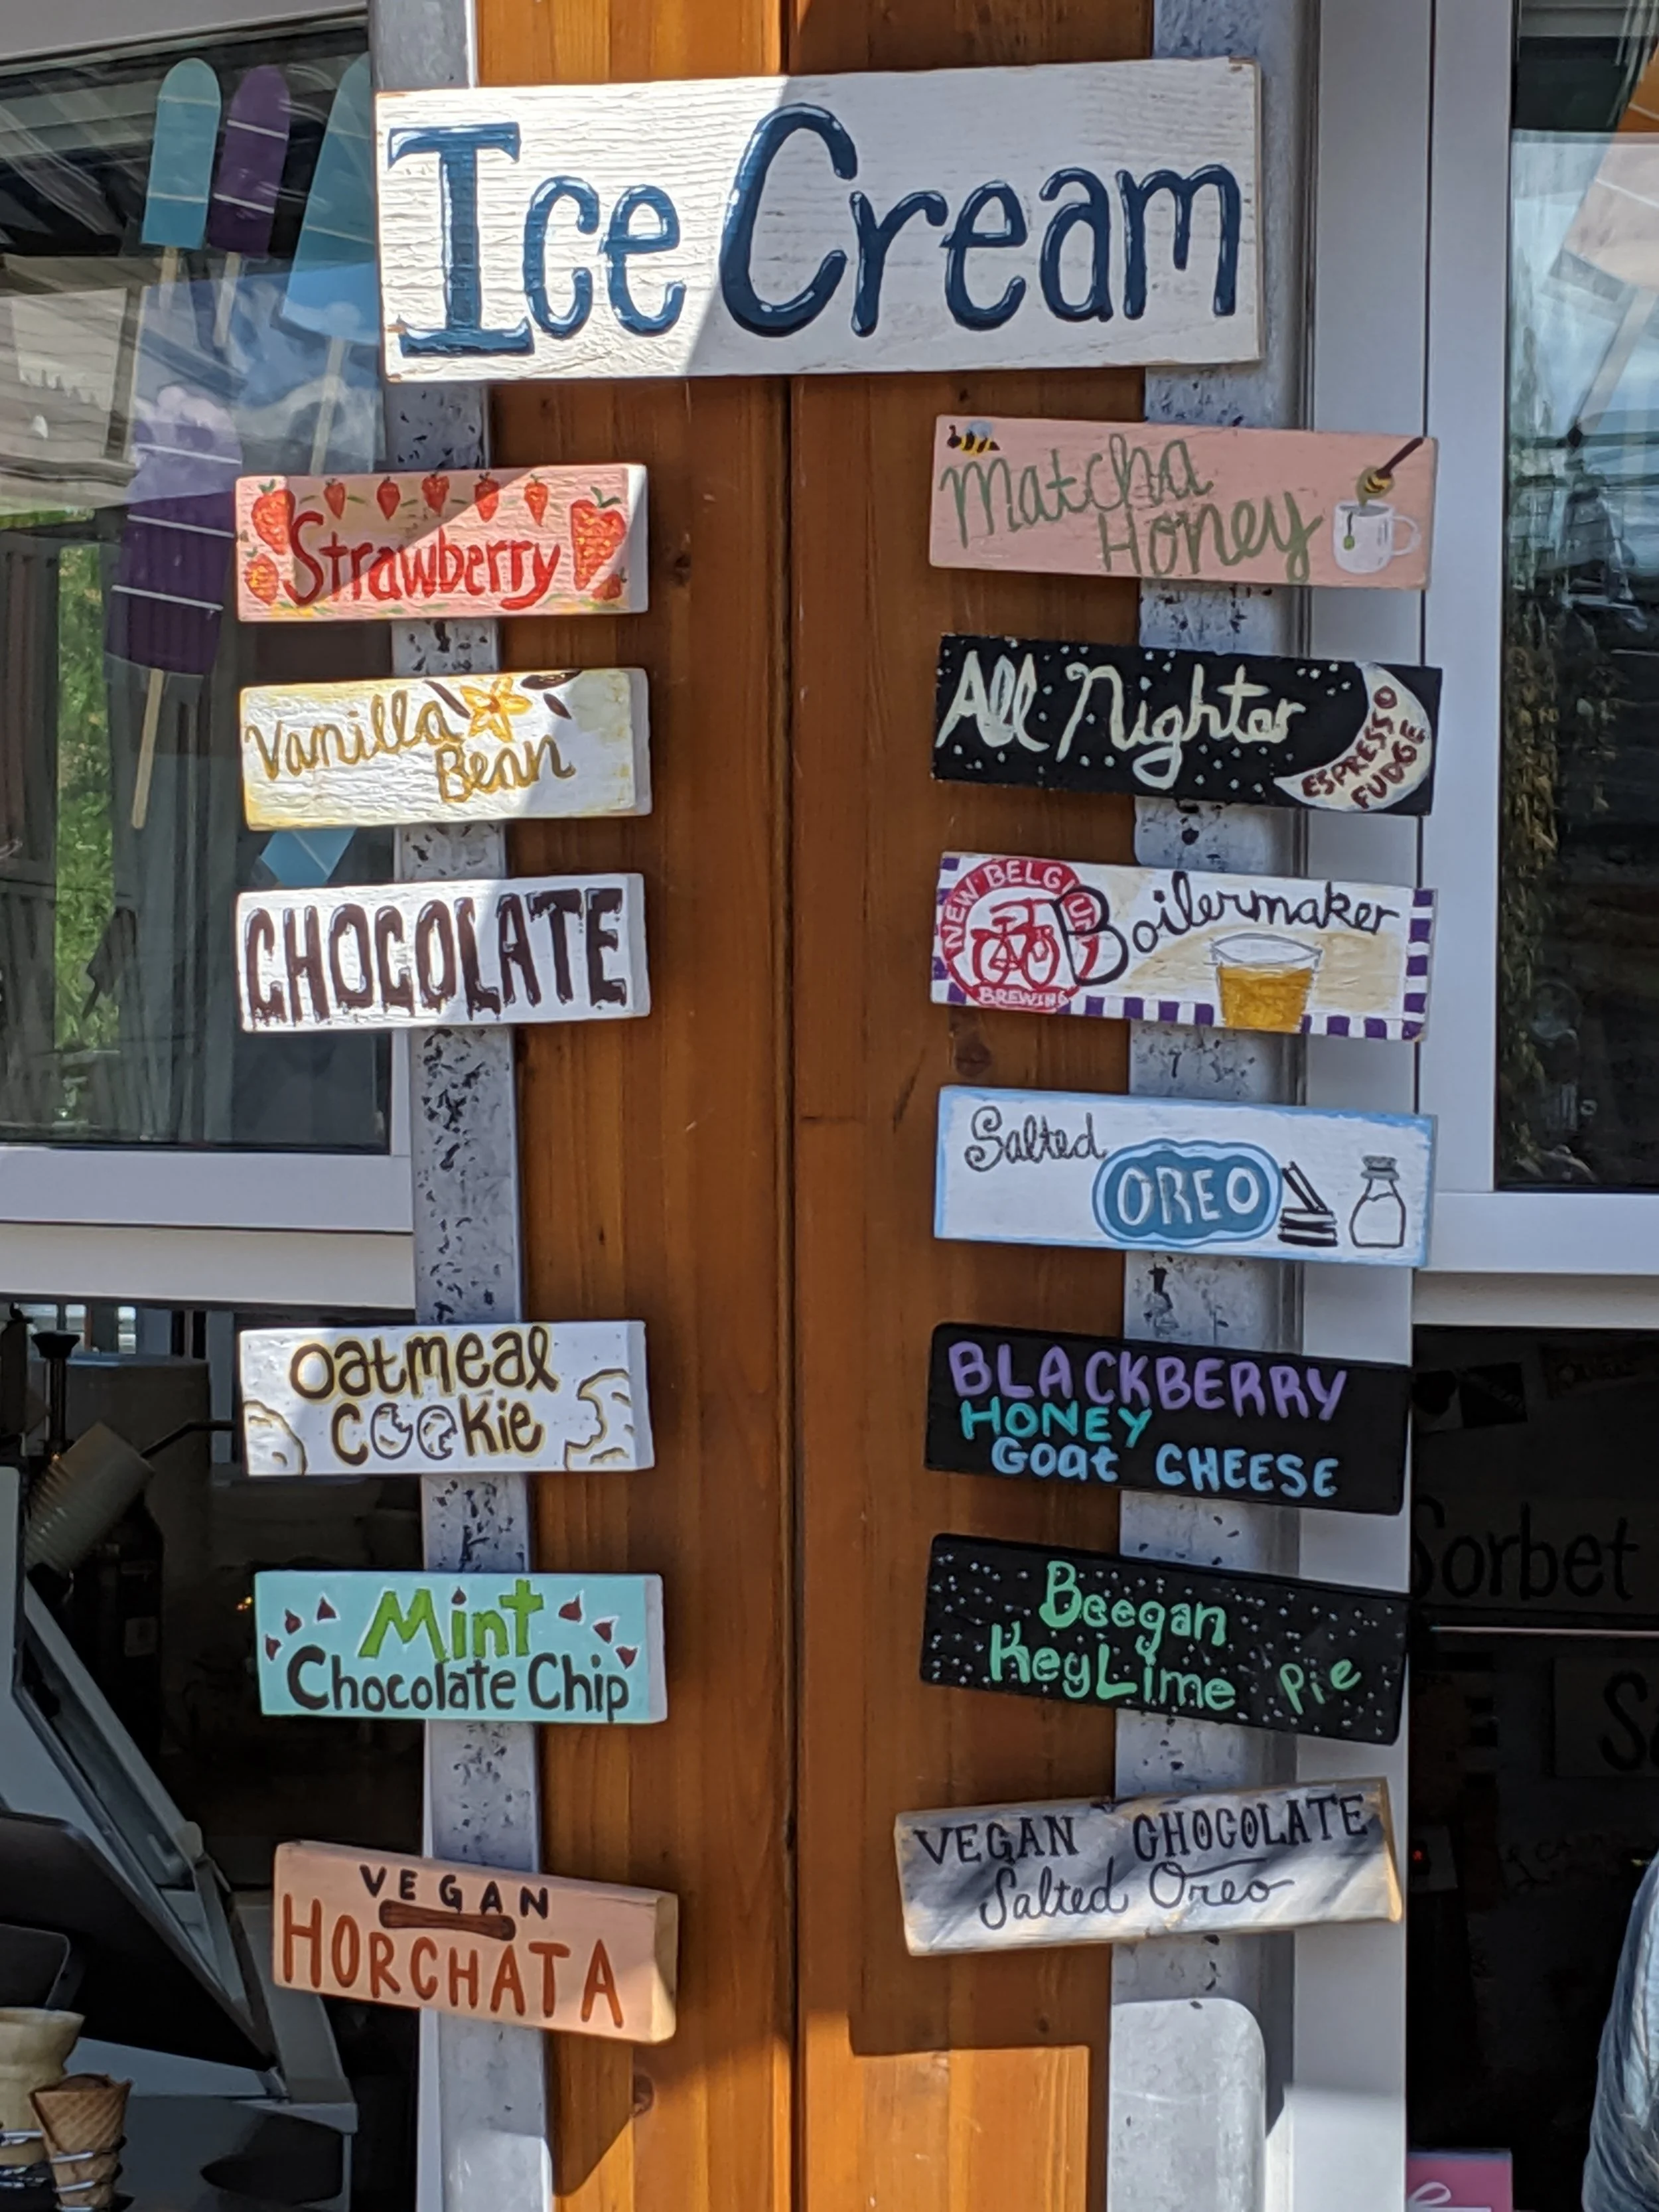 Ice Cream
Strawberry
Vanilla
Bean
CHOCOLATE
Oatmeal
Cookie
Mint
Chocolate Chip
VEGAN
HORCHATA
Matcha
Honey
All Nighter
ESPRESSO
FUDGE
NEW BELGIUM
BREWING
Boilermaker
Salted
OREO
BLACKBERRY
HONEY
Goat CHEESE
Beegan
Key Lime Pie
VEGAN CHOCOLATE
Salted Oreo
Sorbet